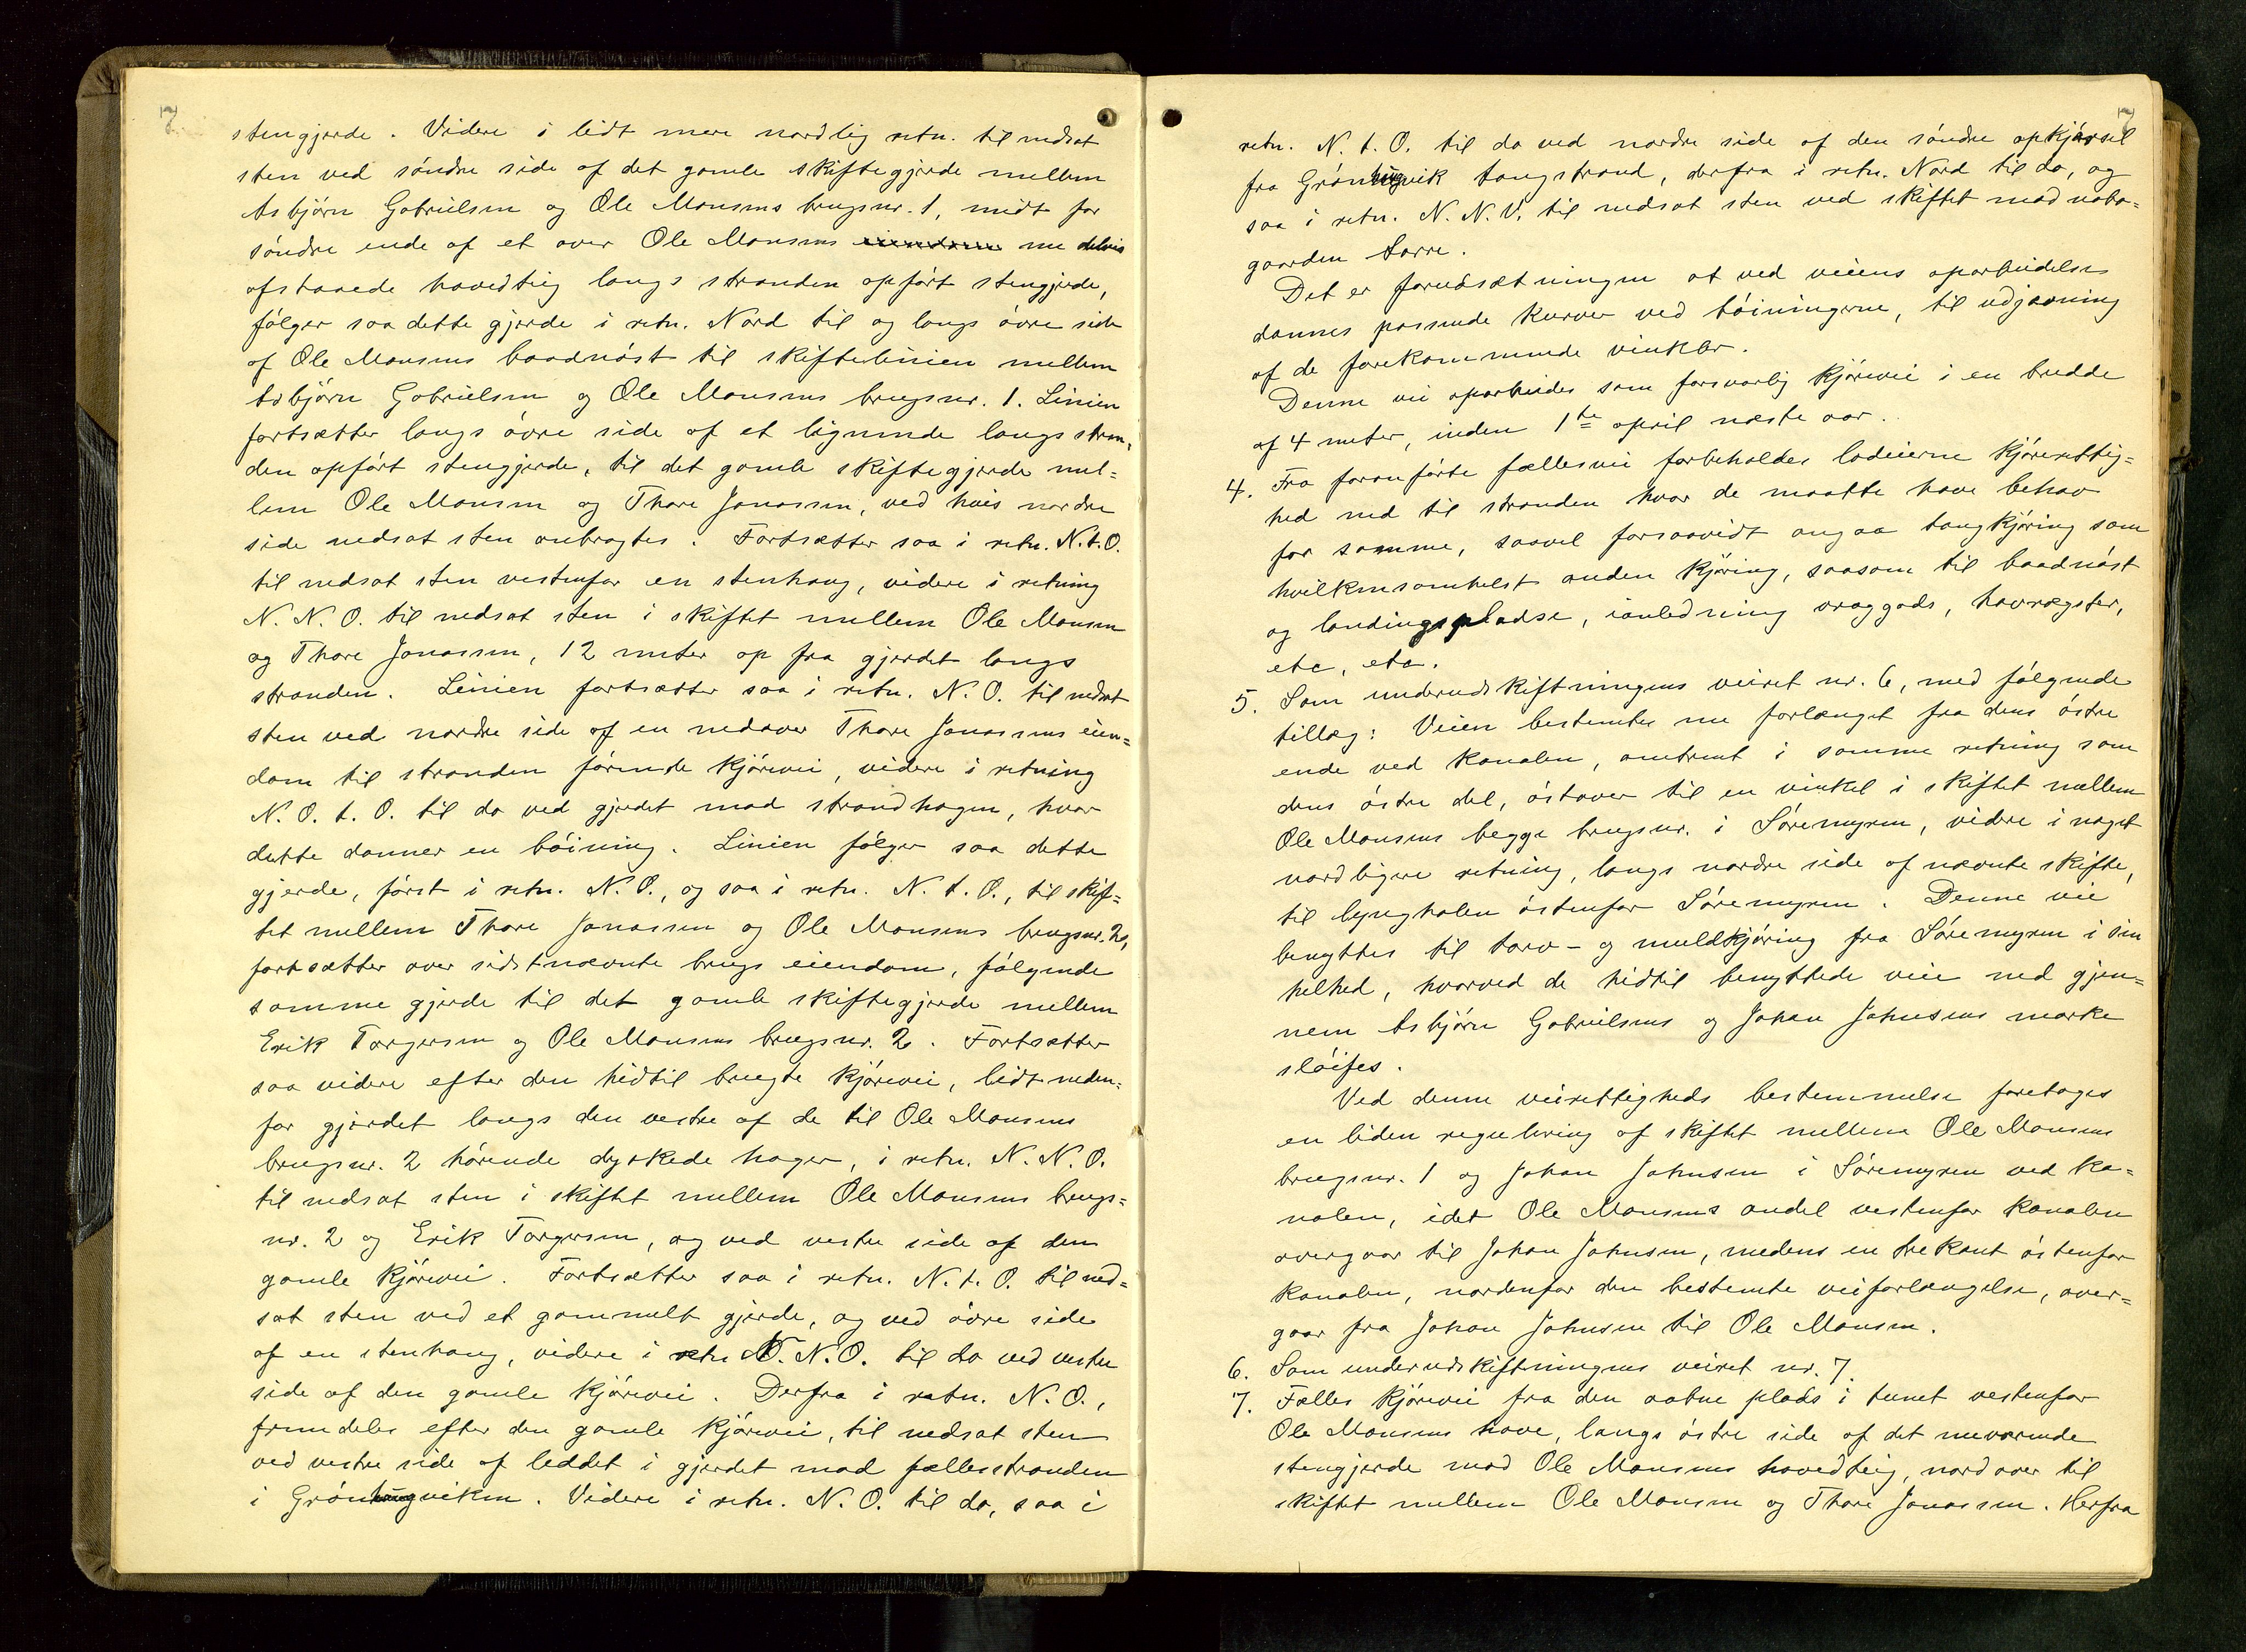 7
stengjerde. Videre i lidt mere nordlig retn. til nedsat
sten ved söndre side af det gamle skiftegjerde mellem
Asbjörn Gabrielsen og Ole Monsens brugsnr. 1, midt for
söndre ende af et over Ole Monsens eiendom nu delvis
ofstaaede havedteig langs stranden opfört stengjerde,
fölger saa dette gjerde i retn. Nord til og langs övre side
af Ole Monsens baadnöst til skiftelinien mellem
Asbjörn Gabrielsen og Ole Monsens brugsnr. 1. Linien
fortsætter langs övre side af et lignende langs stran-
den opfört stengjerde, til det gamle skiftegjerde mel=
lem Ole Monsen og Thore Jonassen, ved hvis nordre
side nedsat sten anbragtes. Fortsætter saa i retn. N.t.O.
til nedsat sten vestenfor en stenhaug, videre i retning
N. N. O. til nedsat sten i skiftet mellem Ole Monsen
og Thore Jonassen, 12 meter op fra gjerdet langs
stranden. Linien fortsætter saa i retn. N. O. til nedsat
sten ved nordre side af en nedover Thore Jonassens eien=
dom til stranden förende kjörevei, videre i retning
N. O. t. O. til do ved gjerdet mod strandhagen, hvor
dette danner en böining. Linien fölger saa dette
gjerde, först i retn. N. O., og saa i retn. N. t. O., til skif=
tet mellem Thore Jonassen og Ole Monsens brugsnr. 2,
fortsætter over sidstnævnte brugs eiendom, fölgende
samme gjerde til det gamle skiftegjerde mellem
Erik Torgersen og Ole Monsens brugsnr. 2. Fortsætter
saa videre efter den hidtil brugte kjörevei, lidt neden=
for gjerdet langs den vestre af de til Ole Monsens
brugsnr. 2 hörende dyrkede hager, i retn. N. N. O.
til nedsat sten i skiftet mellem Ole Monsens brugs=
nr. 2 og Erik Torgersen, og ved vestre side af den
gamle kjörevei. Fortsætter saa i retn. N. t. O. til ned=
sat sten ved et gammelt gjerde, og ved övre side
af en stenhaug, videre i retn N. N. O. til do ved vestre
side af den gamle kjörevei. Derfra i retn. N. O.,
fremdeles efter den gamle kjörevei, til nedsat sten
ved vestre side af leddet i gjerdet mod fællesstranden
i Gröningviken. Videre i retn. N. O. til do, saa i
7
retn. N. t. O. til do ved nordre side af den söndre opkjörsel
fra Gröningvik tangstrand, derfra i retn. Nord til do, og
saa i retn. N. N. V. til nedsat sten ved skiftet mod nabo=
gaarden Sørre.
Det er forudsætningen at ved veiens oparbeidelse
dannes passende kurver ved böiningerne, til udjævning
af de forekommende vinkler.
Denne vei oparbeides som forsvarlig kjörevei i en bredde
af 4 meter, inden 1te april næste aar.
4. Fra foranförte fællesvei forbeholdes lodeierne kjörerettig=
hed ned til stranden hvor de maatte have behov
for samme, saavel forsaavidt angaa tangkjöring som
hvilkensomhelst anden kjöring, saasom til baadnöst
og landingspladse, i anledning vraggods, havrægster,
etc, etc.
5. Som underudskiftningens veiret nr. 6, med fölgende
tillæg: Veien bestemtes nu forlænget fra dens östre
ende ved kanalen, omtrent i samme retning som
dens östre del, östover til en vinkel i skiftet mellem
Ole Monsens begge brugsnr. i Söremyren, videre i noget
nordligere retning, langs nordre side af nævnte skifte,
til lyngholen östenfor Söremyren. Denne vei
benyttes til torv- og muldkjöring fra Söremyren i sin
helhed, hvorved de hidtil benyttede veie ned gjen=
nem Asbjörn Gabrielsens og Johan Johnsens marke
slöifes.
Ved denne veirettigheds bestemmelse foretages
en liden regulering af skiftet mellem Ole Monsens
brugsnr. 1 og Johan Johnsen i Söremyren ved ka=
nalen, idet Ole Monsens andel vestenfor kanalen
overgaar til Johan Johnsen, medens en trekant östenfor
kanalen, nordenfor den bestemte veiforlængelse, over=
gaar fra Johan Johnsen til Ole Monsen.
6. Som underudskiftningens veiret nr. 7.
7. Fælles kjörevei fra den aabne plads i tunet vestenfor
Ole Monsens have, langs östre side af det nuværende
stengjerde mod Ole Monsens hovedteig, nordover til
skiftet mellem Ole Monsen og Thore Jonassen. Herfra